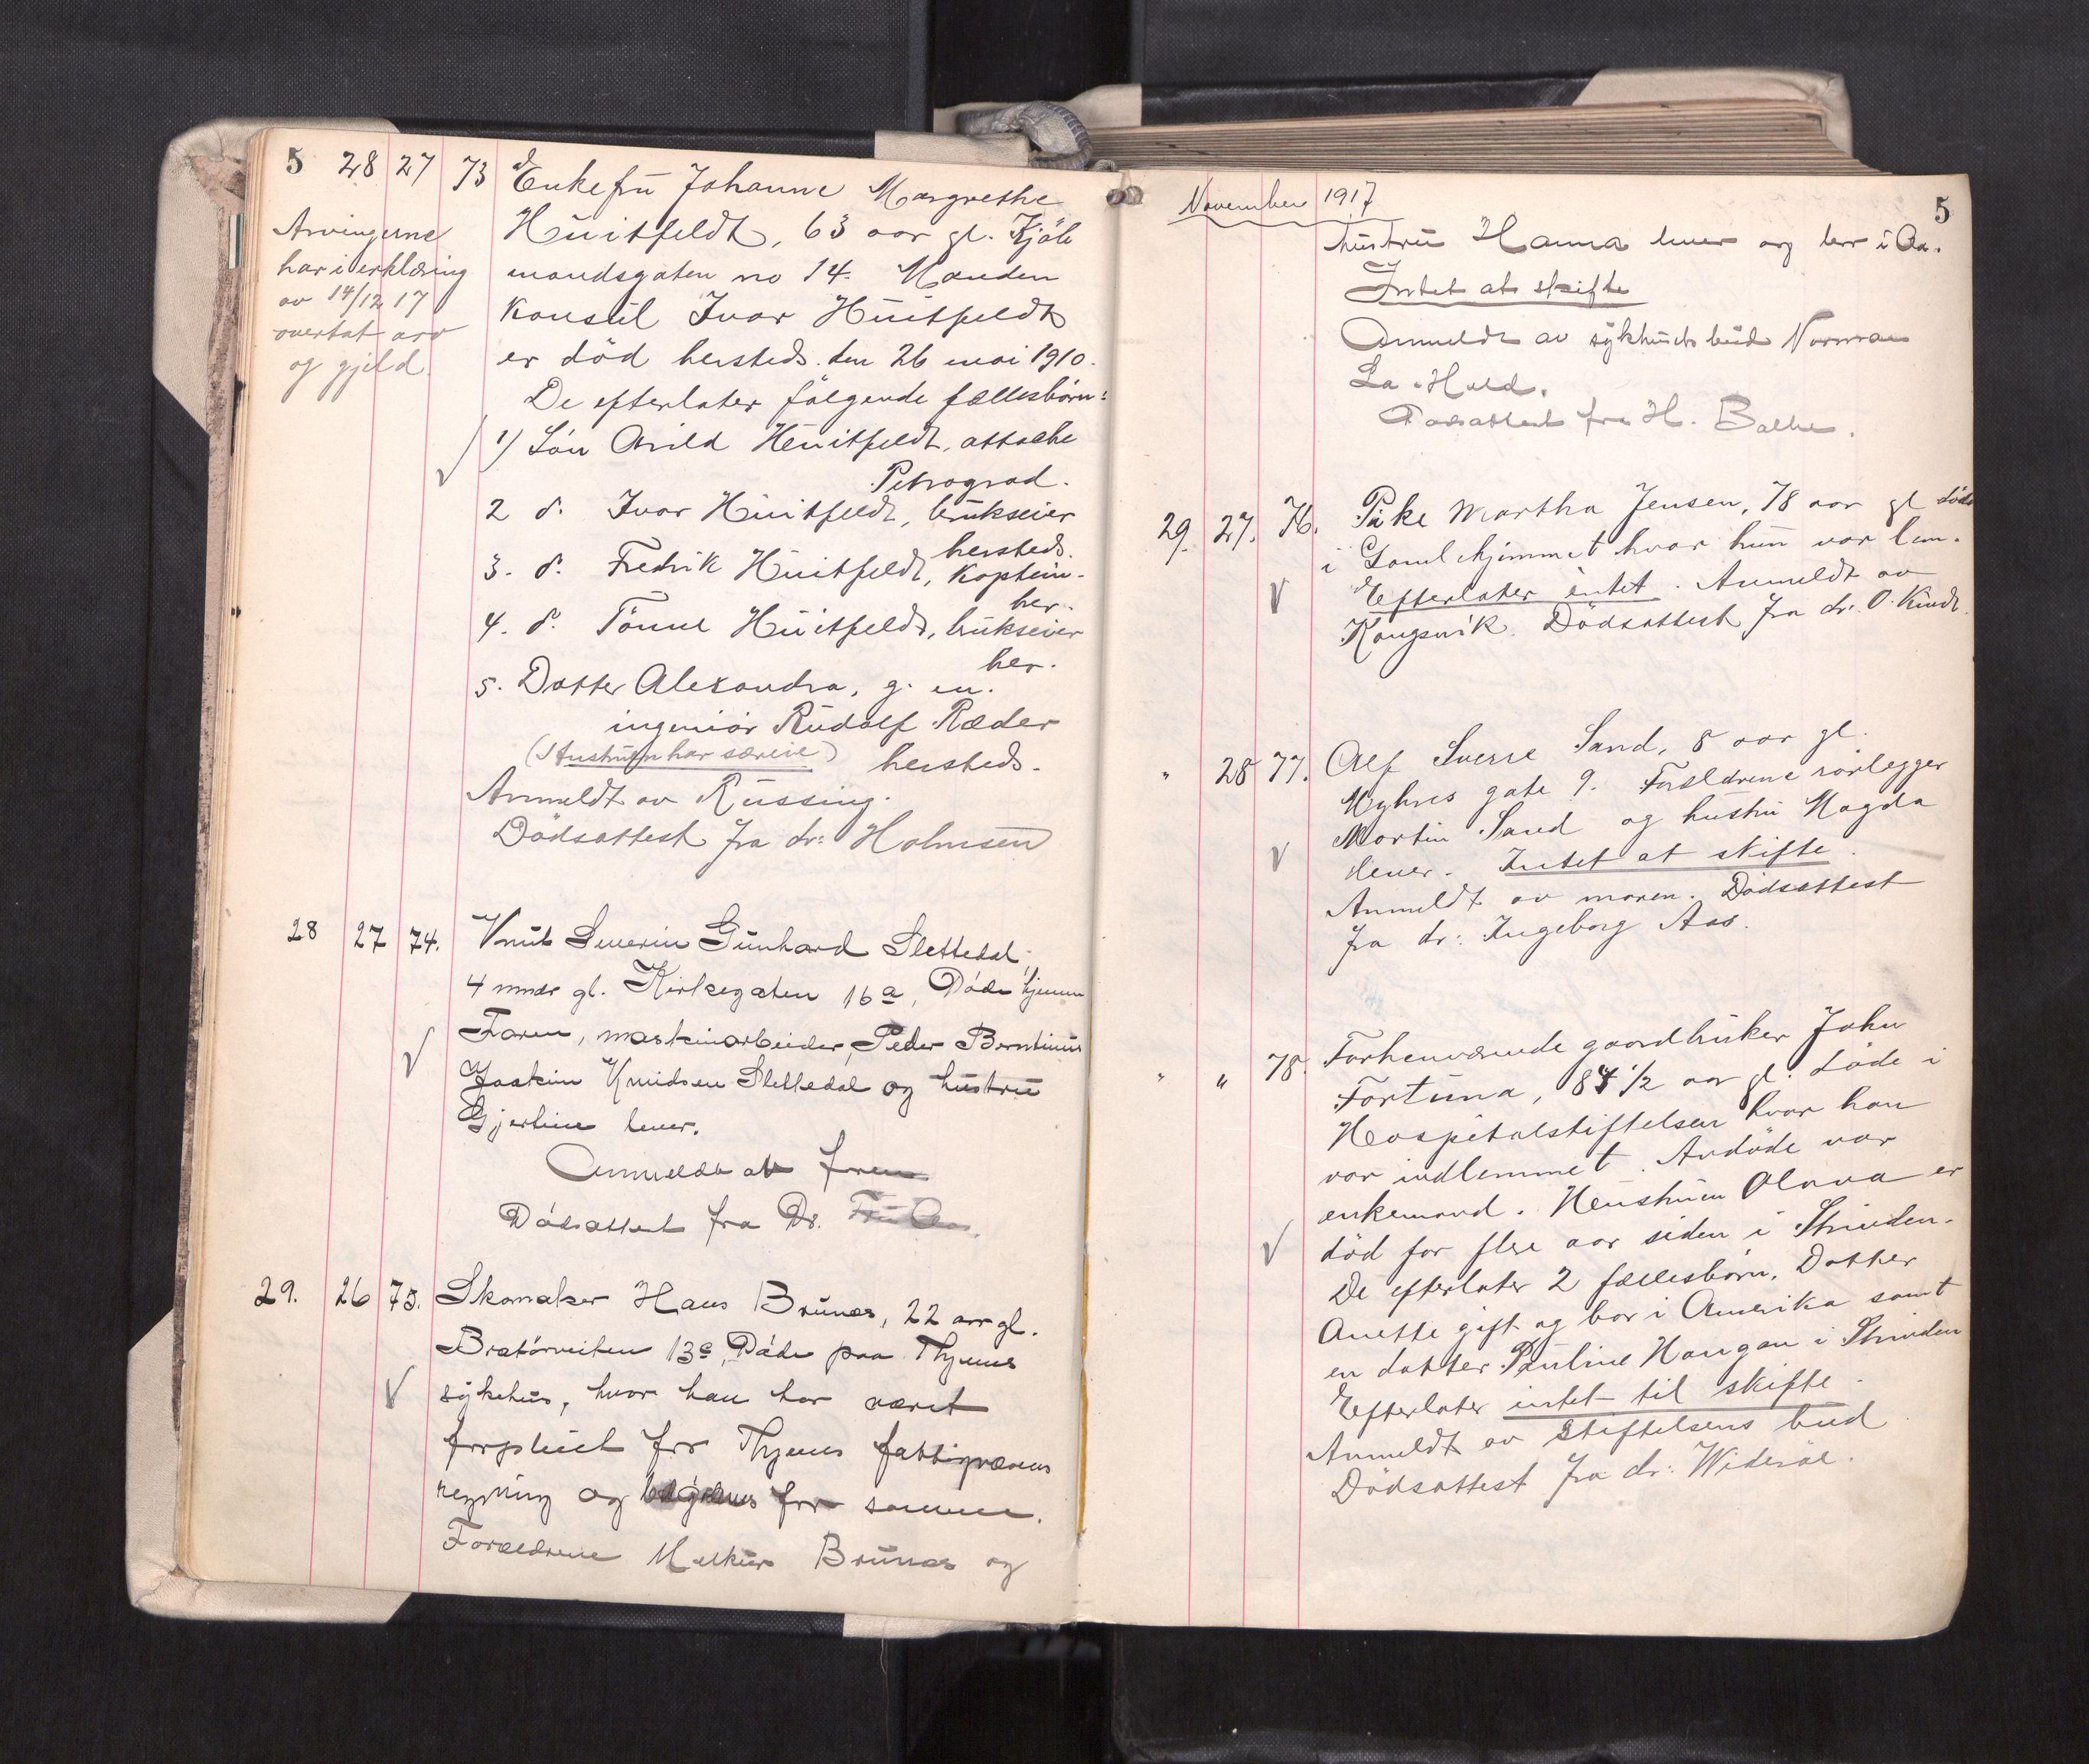 5 28 27 73 Enkefru Johanne Margrethe
Huitfeldt, 63 aar gl. Kjöb
mandsgaten no 14. Manden
Konsul Ivar Huitfeldt
er död hersteds den 26 mai 1910.
De efterlater følgende fællesbörn:
Arvingerne
har i erklæring
av 14/12 17
overtat arv
og gjeld.
1) Sön Arild Huitfeldt, attache
Petrograd.
2 d. Ivar Huitfeldt, brukseier
hersteds.
3. d. Fredrik Huitfeldt, Kaptein
her.
4. d. Tönne Huitfeldt, brukseier
her.
5. Datter Alexandra, g. m.
ingeniör Rudolf Ræder
(Hustruen har særeie) hersteds.
Anmeldt av Russing.
Dödsattest fra dr: Holmsen
28 27 74. Knut Severin Gunhard Slettedal
4 mndr gl. Kirkegaten 16a, Döde hjemme
Faren, maskinarbeider, Peder Berntinus
Joakim Knudsen Slettedal og hustru
Gjertine lever.
Anmeldt av faren
Dödsattest fra Dr. Fru Aas.
29. 26 75. Skomaker Hans Brunes, 22 aar gl.
Bratörveiten 13c, Döde paa Thjems
sykehus, hvor han har været
forpleiet for Thjems fattigvæsens
regning og begraves for samme.
Forældrene Melkior Brunes og
November 1917 5
hustru Hanna lever og bor i Aa.
Intet at skifte
Anmeldt av sykehusets bud Norman
La. Hald.
Dödsattest fra H. Balke.
29. 27. 76. Pike Martha Jensen, 78 aar gl Döde
i Gamlehjemmet hvor hun var lem.
Efterlater intet. Anmeldt av
Kongsvik. Dödsattest fra dr. O. Kindt.
" 28 77. Alf Sverre Sand, 8 aar gl.
Myhres gate 9. Forældrene rörlegger
Martin Sand og hustru Magda
lever. Intet at skifte.
Anmeldt av moren. Dödsattest
fra dr: Ingeborg Aas.
" " 78. Forhenværende gaardbruker John
Fortuna, 84 1/2 aar gl. Döde i
Hospitalstiftelsen hvor han
var indlemmet. Avdöde var
enkemand. Hustruen Olava er
död for flere aar siden i Strinden.
De efterlater 2 fællesbörn. Datter
Anette gift og bor i Amerika samt
en datter Pauline Haugan i Strinden
Efterlater intet til skifte.
Anmeldt av Stiftelsens bud
Dödsattest fra dr: Wideröe.